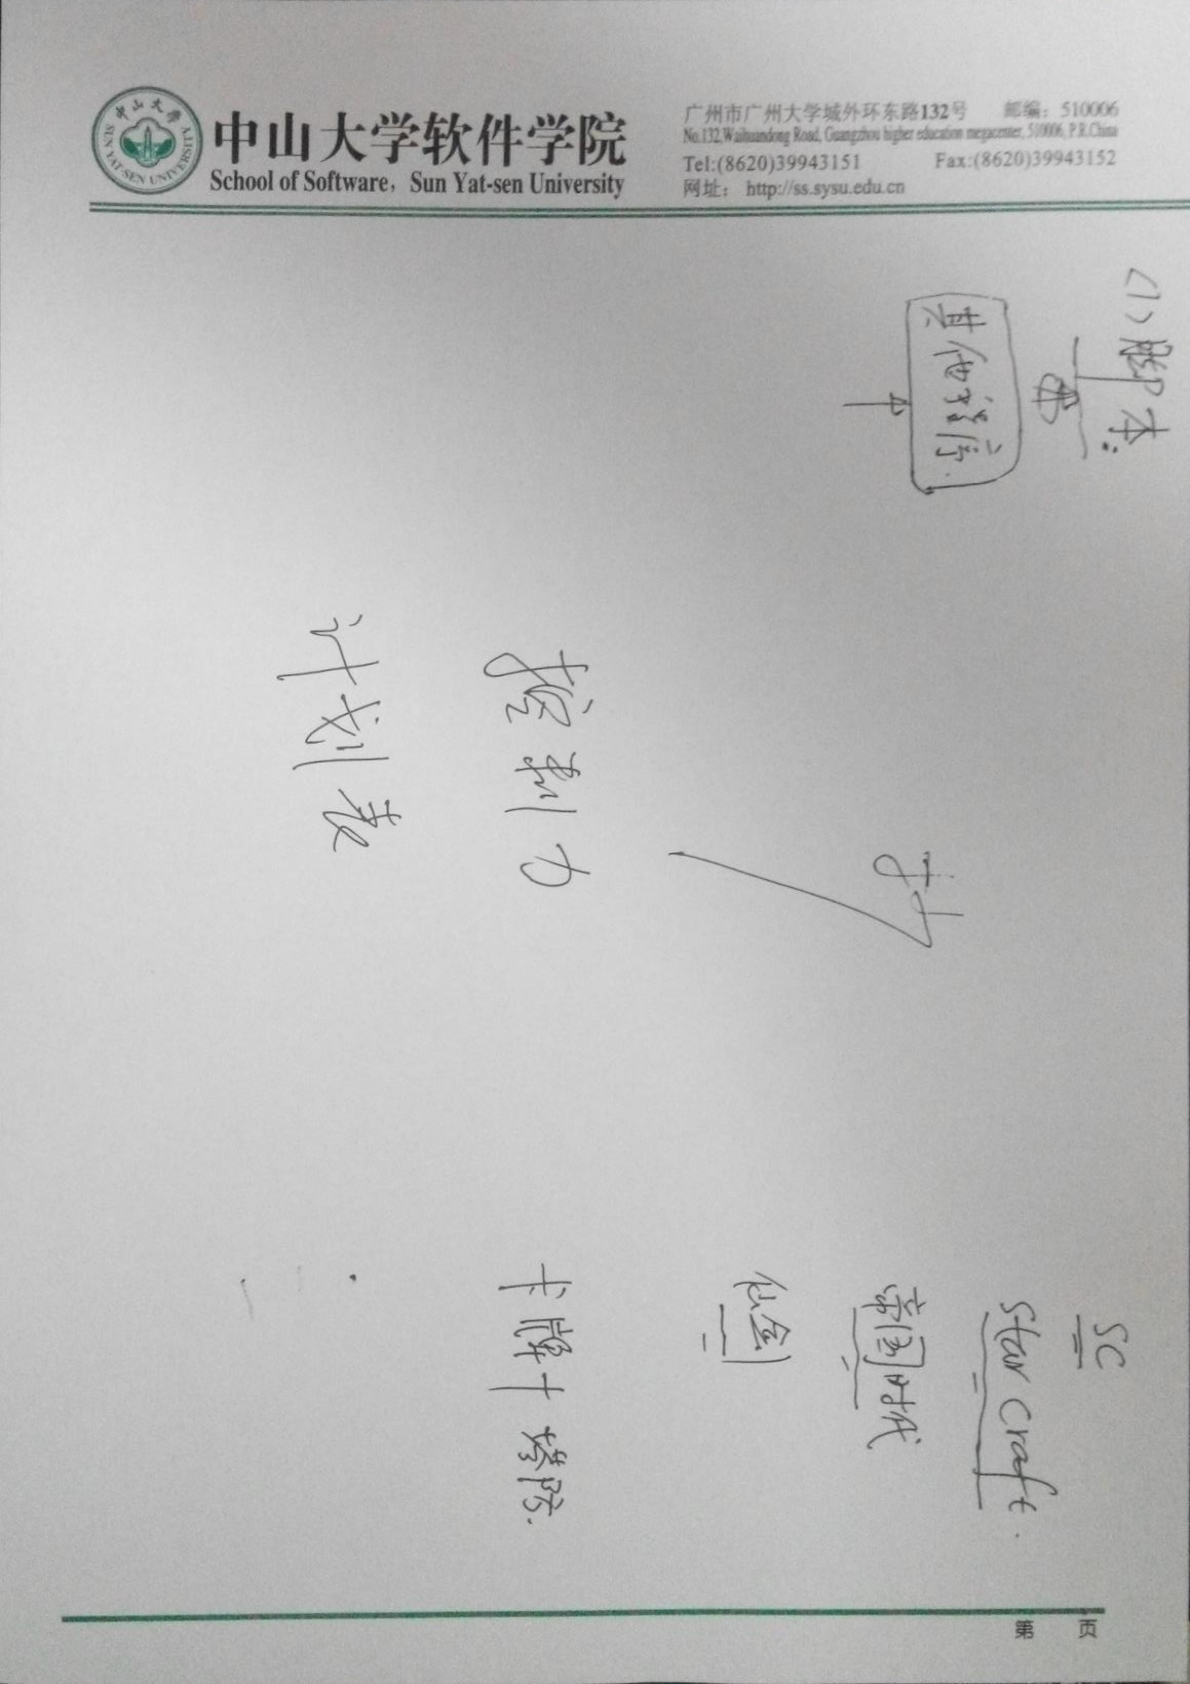 中山大学
SUN YAT-SEN UNIVERSITY
中山大学软件学院
School of Software, Sun Yat-sen University
广州市广州大学城外环东路132号 邮编：510006
No.132,Waihuandong Road, Guangzhou higher education megacenter, 510006, P.R.China
Tel:(8620)39943151 Fax:(8620)39943152
网址： http://ss.sysu.edu.cn
(1) 脚本:
其他程序.
控制力
计划表
SC
Star Craft.
帝国时代
仙剑
卡牌+塔防.
第 页